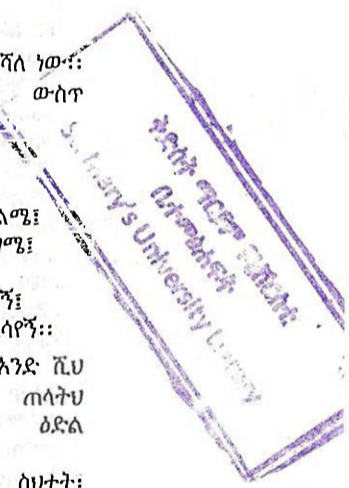 ሻለ ነው፡፡
ውስጥ
ልሜ፤
ሜ፤
ኝ፤
ሳየኝ፡፡
አንድ ሺህ
ጠላትህ
ዕድል
ስህተት፡
ቅድስት ማርያም ዩኒቨርሲቲ
ቤተመጽሐፍት
St. Mary's University Library